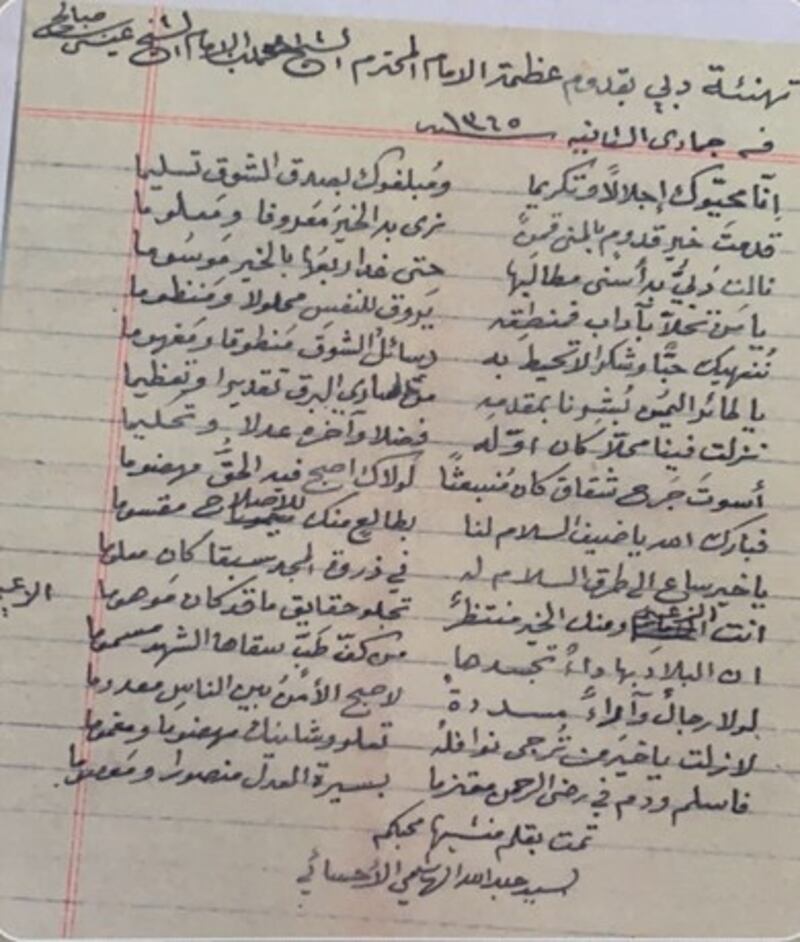 تهنئة دبي بقدوم عظمة الامام المحترم الشيخ محمد الامام الشيخ عيسى صالح
في جمادى الثانيه ١٣٦٥
إنّا محيّوك إجلالاً وتكريما ومُبلغوك بصدق الشوق تسليما
قدمتَ خير قدوم بالمنى قمنٌ نرى به الخير مَعروفا ومعلوما
نالت دُبيُّ به أسنى مطالبها حتى غدا ربعُها بالخير مَوسُوما
يا من تحلّا بآداب فمنطقه يَروق للنفس محلولا ومَنظوما
نُنهيك حبًّا وشكرا لا تحيط به رسائل الشوق مَنطوقا ومَفهوما
يا طائر اليُمن بُشِّرنا بمقدمه لهادي البرق تقديرا وتعظيما
نزلت فينا محلّا كان اوّله فضلا وآخره عدلا وتحكيما
أسوتَ جَرح شقاق كان مُنبعثًا لولاك اصبح فيه الحقّ مهضوما
فبارك الله يا ضيف السلام لنا بطالع منك للاصلاح مقسوما
يا خير ساع الى طرق السلام له في ذروة المجد سبقا كان معلوما
انت الزعيم ومنك الخير منتظرٌ تجلو حقايق ما قد كان مَوهوما
الزعيم
ان البلاد بها داءٌ تجسدها من كفّ طَبّ سقاها الشهد مسموما
لولا رجالٌ وآراءٌ مسددةٌ لاصبح الأمنُ بين الناس معدوما
لا زلت يا خير من تُرجى نوافلُه تعلو وشانئك مهضوما ومغموما
فاسلم ودم في رضى الرحمن مقترما بسيرة العدل منصورا ومعصوما
تمت بقلم منشيها محبكم
السيد عبد الله الهاشمي الأحسائي